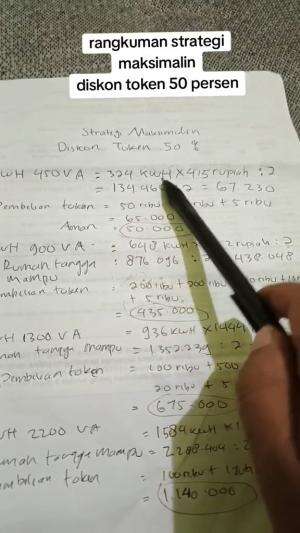 rangkuman strategi
maksimalin
diskon token 50 persen
Strategi Maksimalin
Diskon Token 50 %
WH 450 VA = 324 KWH × 415 rupiah : 2
= 134.46 2 = 67.230
Pembelian token = 50 ribu ribu + 5 ribu
= 65.000
Aman = 50.000
WH 900 VA = 648 KWH 2 rupiah : 2
Rumah tangga : 876.096 : 2 438.048
mampu
token : 200 ribu + 200 ribu
+ 5 ribu
= 435.000
H 1300 VA = 936 KWH × 1444
tangga mampu = 1.352.239 : 2
Pembelian token = 100 ribu + 500
20 ribu + 5
= 675.000
WH 2200 VA = 1584 KWH × 1
tangga mampu = 2.288.404 : 2
token = 100 ribu +
= 1.140.000